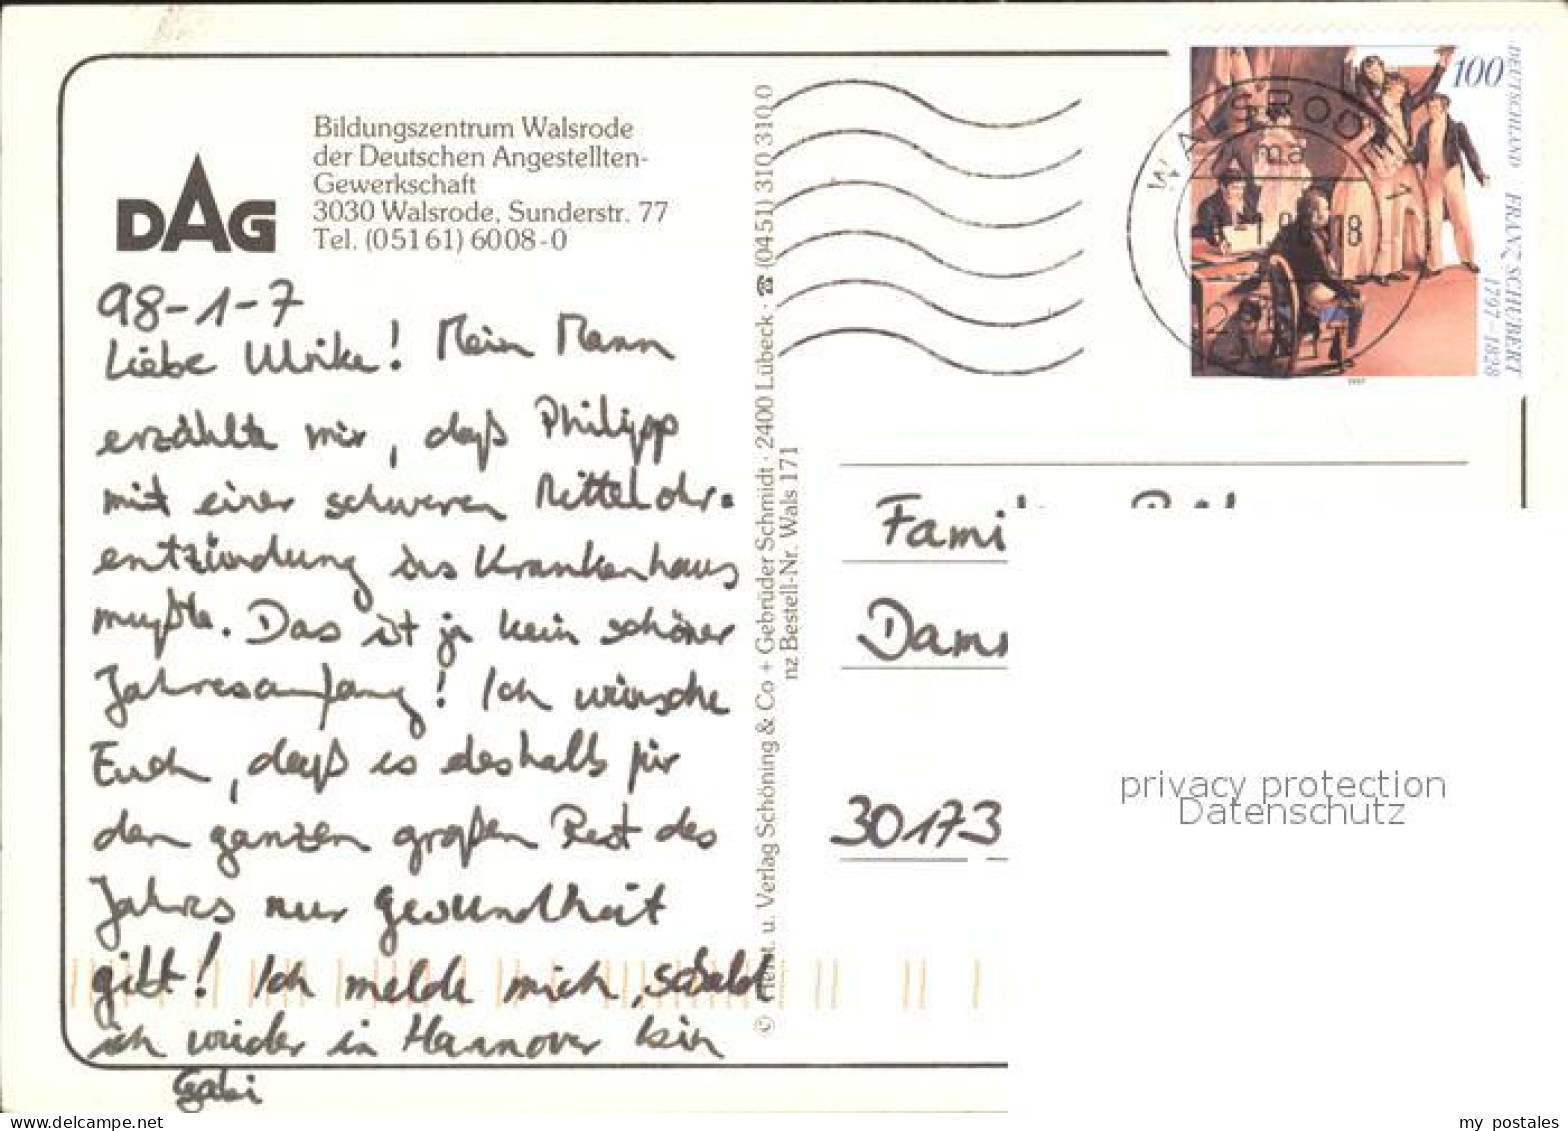 Bildungszentrum Walsrode
der Deutschen Angestellten-
Gewerkschaft
3030 Walsrode, Sunderstr. 77
Tel. (05161) 6008-0
DAG
98-1-7
Liebe Ulrike! Mein Mann
erzählte mir, daß Philipp
mit einer schweren Mittelohr=
entzündung ins Krankenhaus
mußte. Das ist ja kein schöner
Jahresanfang! Ich wünsche
Euch, daß es deshalb für
den ganzen großen Rest des
Jahres nur Gesundheit
gibt! Ich melde mich, sobald
ich wieder in Hannover bin
Gabi
© Herst. u. Verlag Schöning & Co + Gebrüder Schmidt · 2400 Lübeck · ☎ (0451) 310 310 0
nz Bestell-Nr. Wals 171
WALSRODE 1
ma
18
100
DEUTSCHLAND FRANZ SCHUBERT
1797–1828
1997
Fami
Dam
30173
privacy protection
Datenschutz
my postales